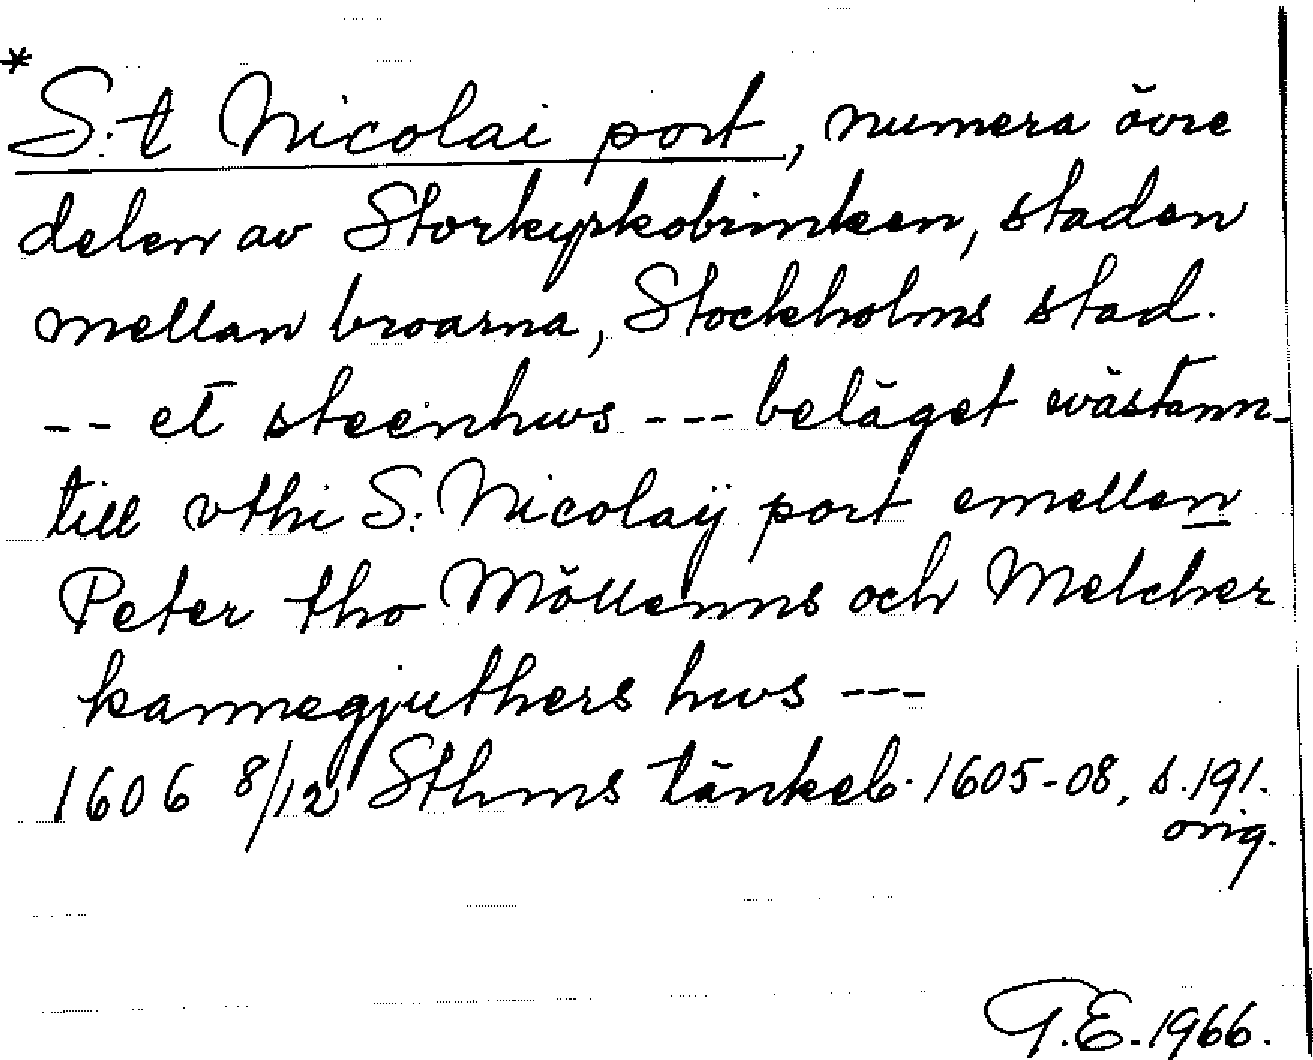 * S:t Nicolai port, numera övre
delen av Storkyrkobrinken, staden
mellan broarna, Stockholms stad.
-- et steenhws --- beläget wästann-
till vthi S: Nicolaÿ port emellen
Peter tho Möllenns och Melcher
kannegjuthers hws ---
1606 8/12 Sthms tänkeb. 1605-08, s. 191.
orig.
T.E. 1966.